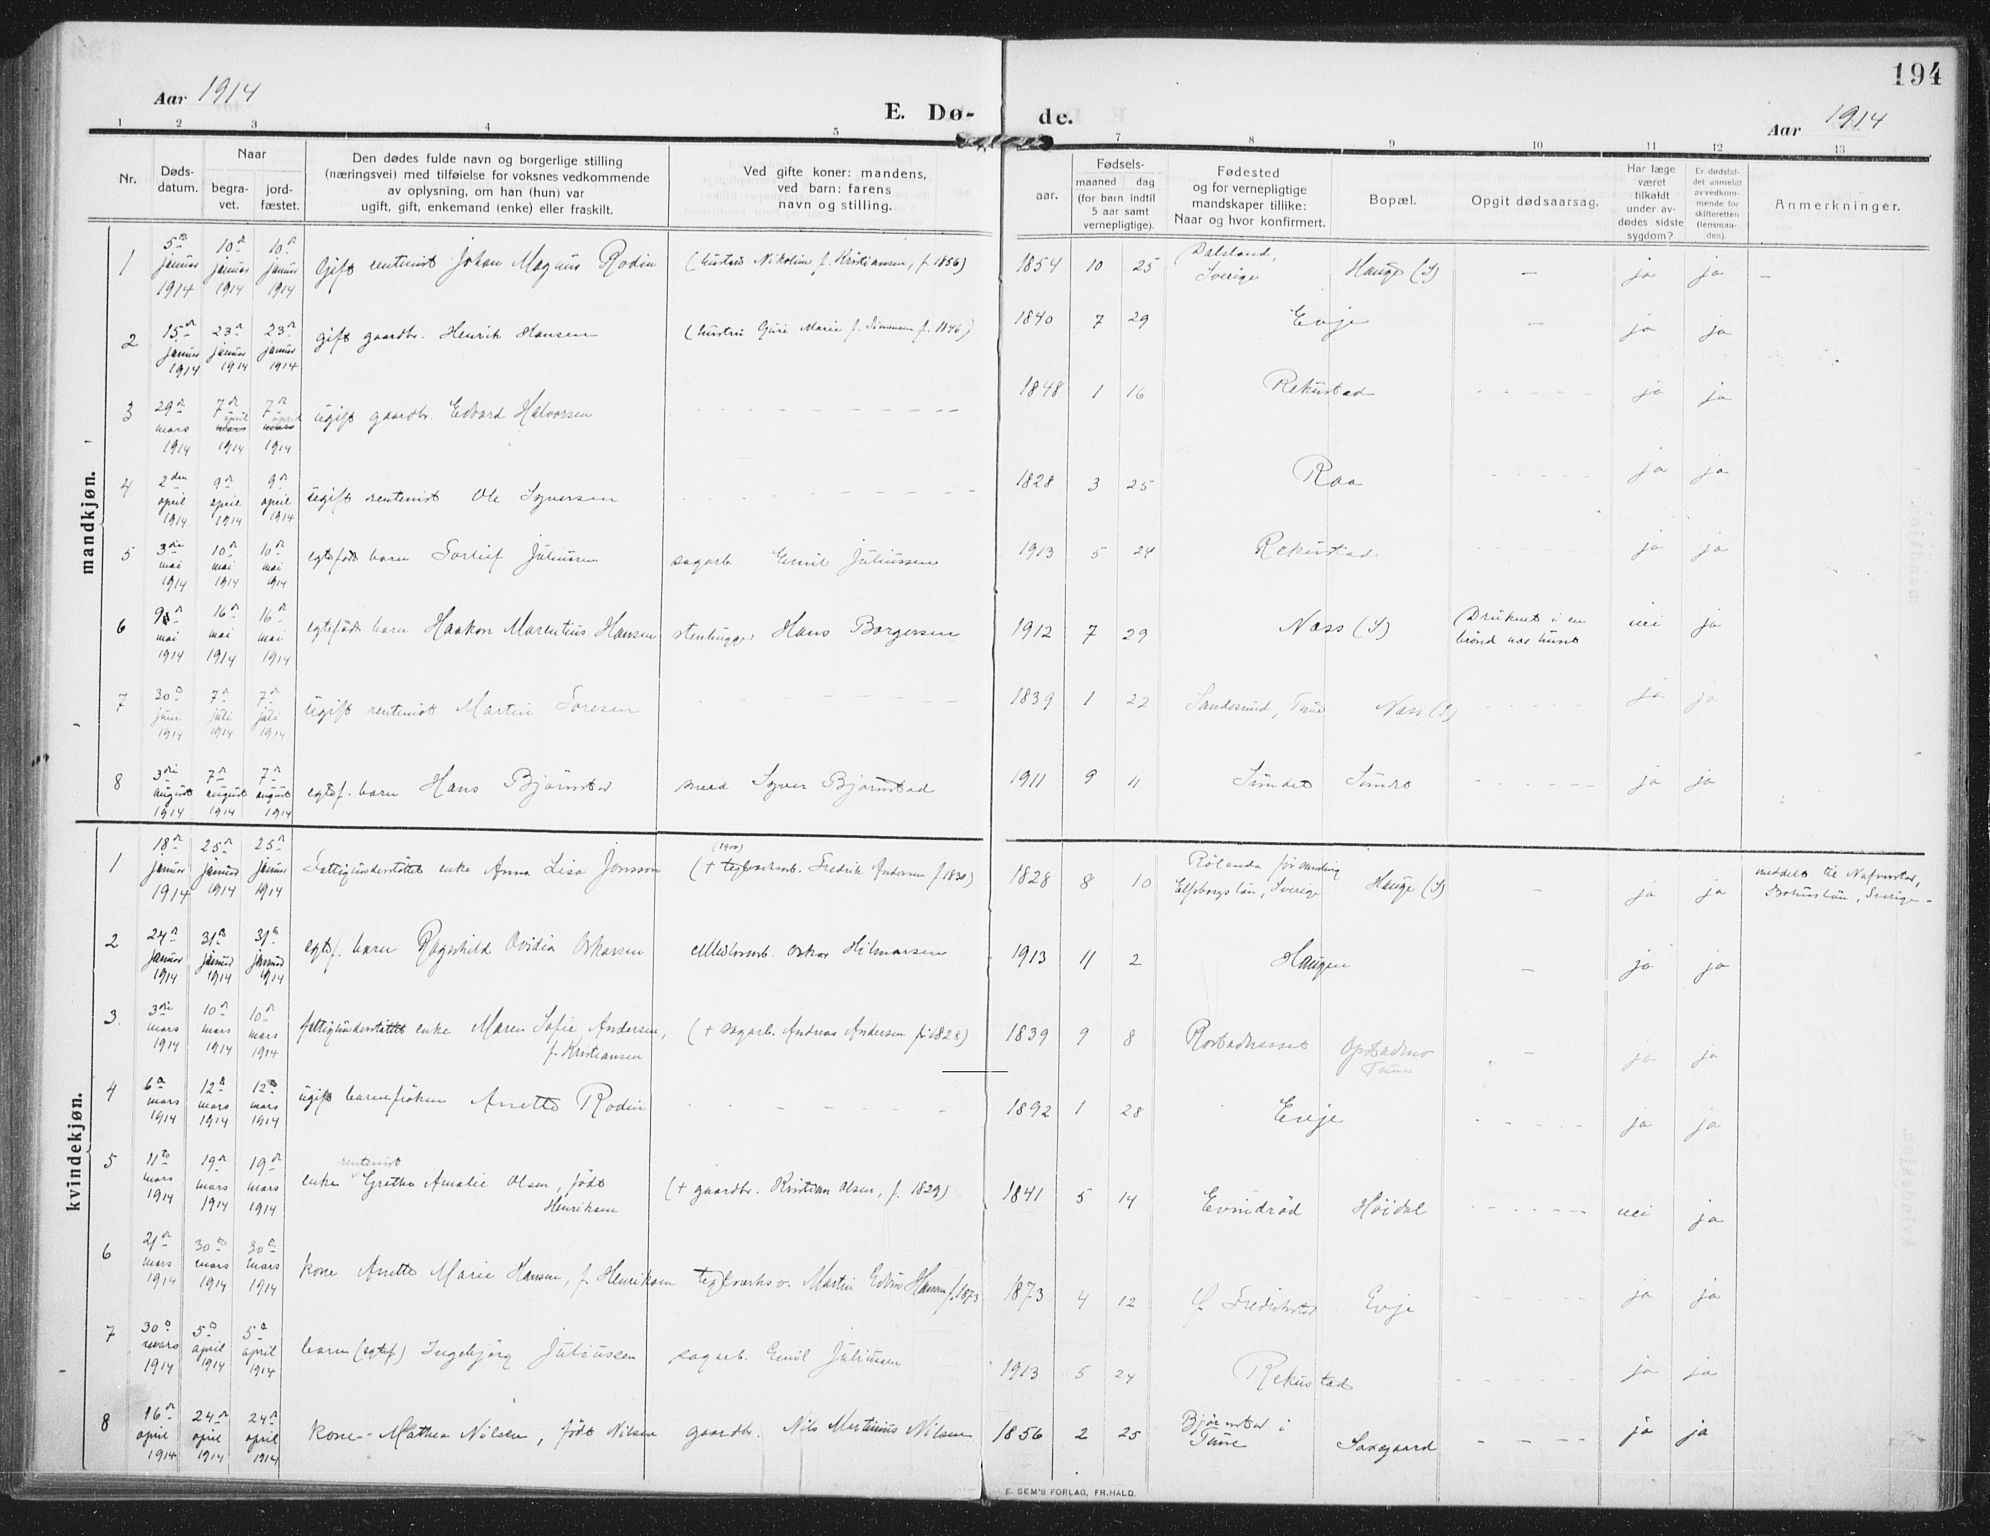 194
Aar 1914
E. Dø-
de.
Aar 1914
1 2 3 4 5 7 8 9 10 11 12 13
Nr.
Døds-
datum.
Naar
begra-
vet.
jord-
fæstet.
Den dødes fulde navn og borgerlige stilling
(næringsvei) med tilføielse for voksnes vedkommende
av oplysning, om han (hun) var
ugift, gift, enkemand (enke) eller fraskilt.
Ved gifte koner: mandens,
ved barn: farens
navn og stilling.
aar.
Fødsels-
maaned dag
(for barn indtil
5 aar samt
vernepligtige).
Fødested
og for vernepligtige
mandskaper tillike:
Naar og hvor konfirmert.
Bopæl.
Opgit dødsaarsag.
Har læge
været
tilkaldt
under av-
dødes sidste
sygdom?
Er dødsfal-
det anmeldt
av vedkom-
mende for
skifteretten
(lensmaa-
den).
Anmerkninger.
mandkjøn.
1 5te januar 1914 10de januar 1914 10de januar 1914 Gift rentenist Johan Magnus Rodin (hustru Nikoline f. Kristiansen, f. 1856) 1854 10 25 Dalsland, Sverige Hauge (S) — ja ja —
2 15de januar 1914 23de januar 1914 23de januar 1914 gift gaardbr. Henrik Hansen (hustru Guri Marie f. Simensen f. 1846) 1840 7 29 Evje — ja ja
3 29de mars 1914 7de april mars 1914 7de april mars 1914 ugift gaardbr. Edvard Halvorsen 1848 1 16 Rekustad ja ja
4 2den april 1914 9de april 1914 9de april 1914 ugift rentenist Ole Syversen 1828 3 25 Raa ja ja
5 3die mai 1914 10de mai 1914 10de mai 1914 egtefødt barn Torleif Juliussen sagarb. Emil Juliussen 1913 5 24 Rekustad ja ja
6 9de mai 1914 16de mai 1914 16de mai 1914 egtefødt barn Haakon Marentius Hansen stenhugger Hans Borgersen 1912 7 29 Næss (S) (Druknet i en brønd nær huset nei ja
7 30te juni 1914 7de juli 1914 7de juli 1914 ugift rentenist Martin Toresen 1839 1 22 Sandesund, Tune Næss (S) ja ja
8 3die august 1914 7de august 1914 7de august 1914 egtef. barn Hans Bjørnstad smed Syver Bjørnstad 1911 9 11 Sundet Sundet ja ja
kvindekjøn.
1 18de januar 1914 25de januar 1914 25de januar 1914 Fattigunderstøttet enke Anna Lisa Jonsson (+ (1900) teglverksarb. Fredrik Andersen f. 1830) 1828 8 10 Rølanda församling Elfsborgs län, Sverige Hauge (S) — ja ja meddelt til Nafverstad, Bohuslän, Sverige
2 24de januar 1914 31te januar 1914 31te januar 1914 egtef. barn Ragnhild Ovidia Oskarsen Oskar Hilmarsen 1913 11 2 Haugen — ja ja
3. 3die mars 1914 10de mars 1914 10de mars 1914 fattigunderstøttet enke Maren Sofie Andersen, f. Kristiansen (+ sagarb. Andreas Andersen f. 1828) 1839 9 8 Rostadneset Opstadmo Tune — ja ja
4 6te mars 1914 12te mars 1914 12te mars 1914 ugift barnefrøken Anette Rodin 1892 1 28 Evje ja ja
5 11te mars 1914 19de mars 1914 19de mars 1914 enke rentenist Grethe Amalie Olsen, født Henriksen (+ gaardbr. Kristian Olsen, f. 1829) 1841 5 14 Evindrød Høidal nei ja
6 21de mars 1914 30te mars 1914 30te mars 1914 kone Anette Marie Hansen, f. Henriksen teglverks Martin Edvin Hansen f. 1873 1873 4 12 Fredrikstad Evje ja ja
7 30te mars 1914 5te april 1914 5te april 1914 barn (egtef) Ingebjørg Juliussen sagarb. Emil Juliussen 1913 5 24 Rekustad ja ja
8 16de april 1914 24de april 1914 24de april 1914 kone -- Mathea Nilsen, født Nilsen gaardbr. Nils Martinius Nilsen 1856 2 25 Bjørnstad i Tune Saxegaard ja ja
E. SEM'S FORLAG, FR.HALD.